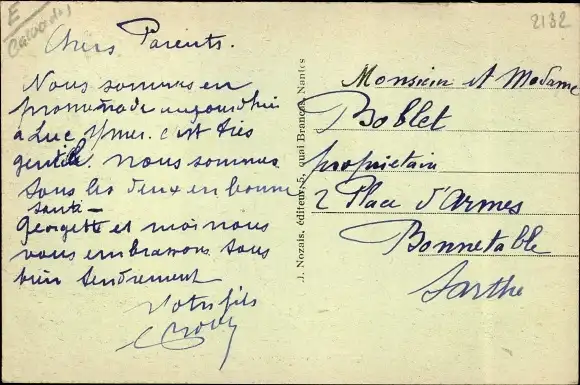 E
Calvados
2132
Chers Parents.
Nous sommes en
promenade aujourdhui
a Luc s/mer. c'est très
gentil. nous sommes
tous les deux en bonne
santé —
Georgette et moi nous
vous embrassons tous
bien tendrement
Votre fils
J. Nozais, éditeur, 5, quai Brancas, Nantes
Monsieur et Madame
Boblet
propriétaire
2 Place d'Armes
Bonnetable
Sarthe